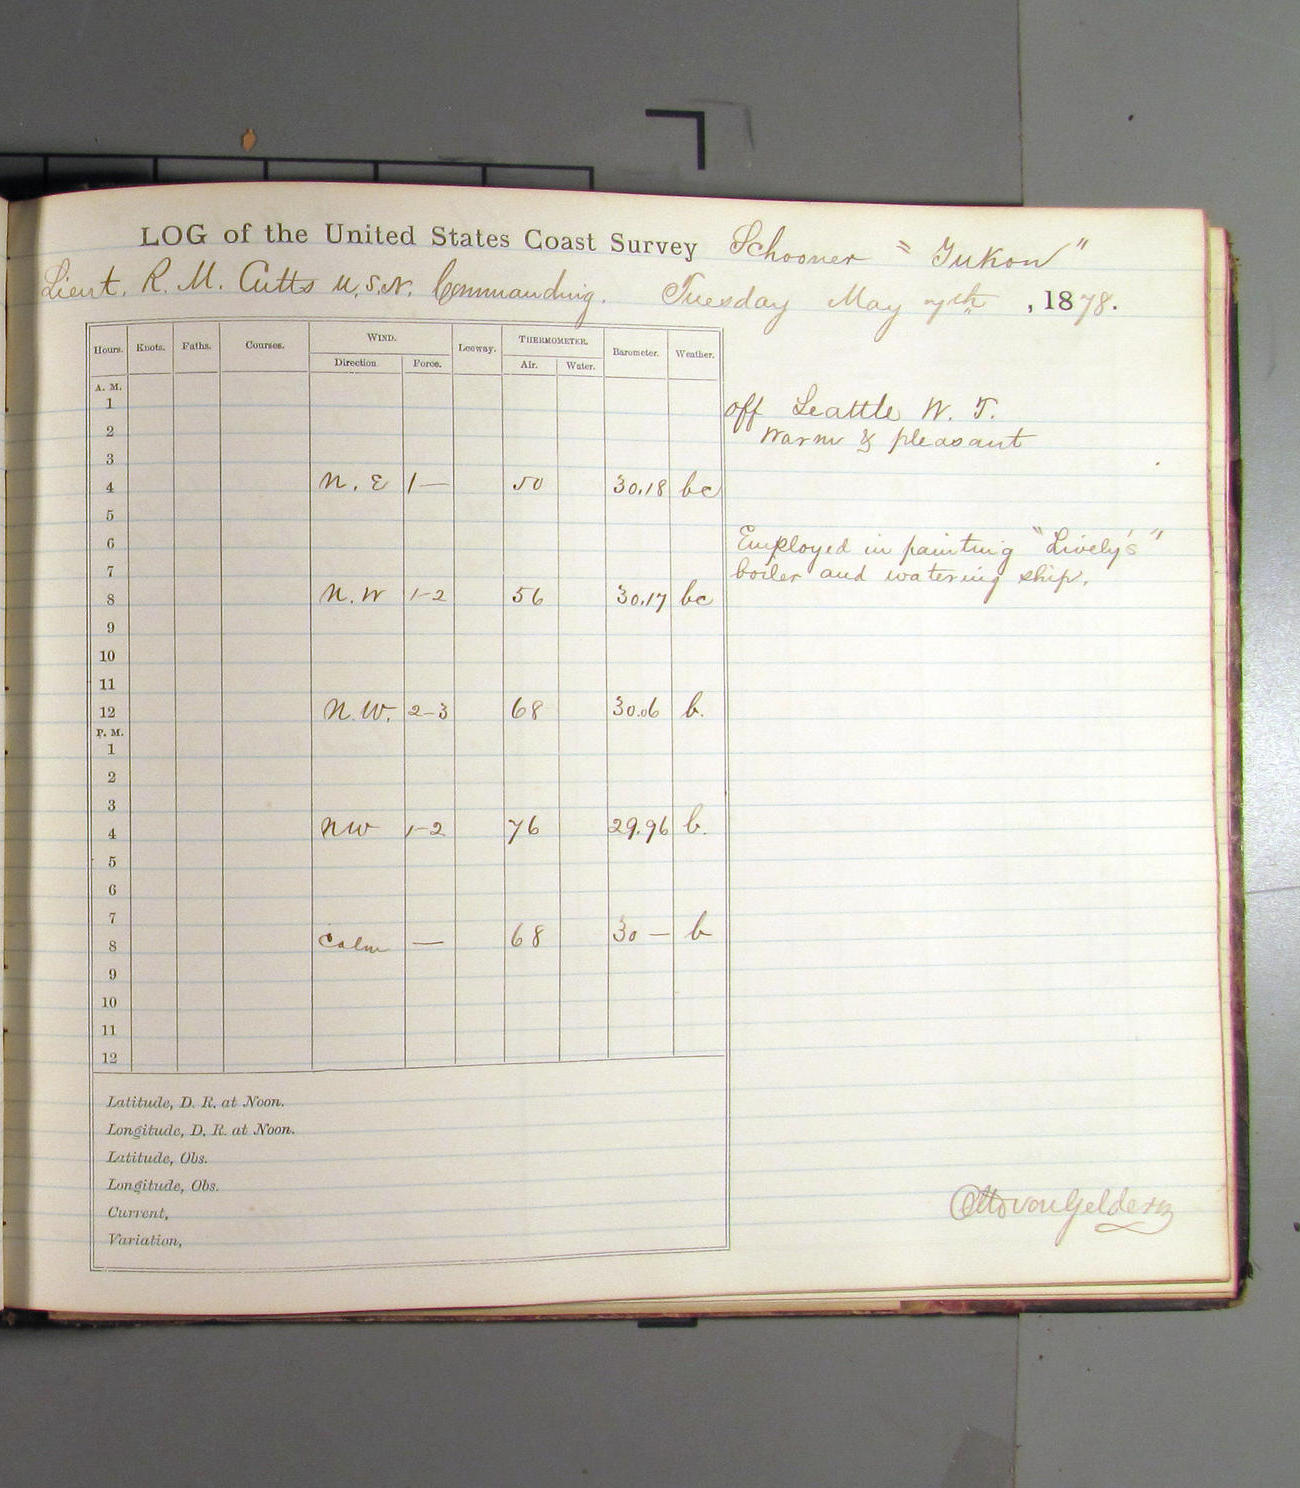 LOG of the United States Coast Survey Schooner "Yukon"
Lieut. R. M. Cutts U.S.N. Commanding. Tuesday May 7th, 1878.
Hours. Knots. Faths. Courses. WIND. Leeway. THERMOMETER. Barometer. Weather.
Direction. Force. Air. Water.
A. M.
1
off Seattle W. T.
2
Warm & pleasant
3
4 N. E 1— 50 30.18 bc
5
6
Employed in painting "Lively's"
7
boiler and watering ship.
8 N. W 1-2 56 30.17 bc
9
10
11
12 N. W. 2-3 68 30.06 b.
P. M.
1
2
3
4 NW 1-2 76 29.96 b.
5
6
7
8 Calm — 68 30 — b
9
10
11
12
Latitude, D. R. at Noon.
Longitude, D. R. at Noon.
Latitude, Obs.
Longitude, Obs.
Current,
Variation,
Otto von Geldern